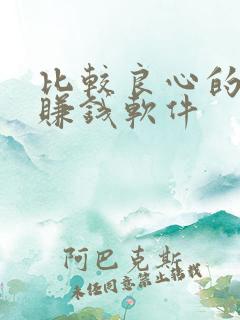 比較良心的
賺錢軟件
阿巴克斯
未经同意禁止转载